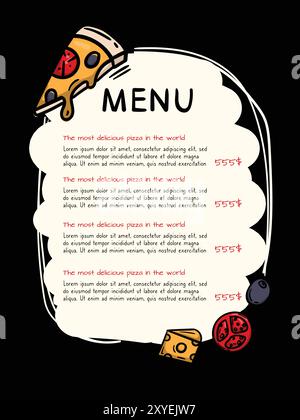 MENU
The most delicious pizza in the world
Lorem ipsum dolor sit amet, consectetur
adipiscing elit, sed do eiusmod tempor
incididunt ut labore et dolore magna
aliqua. Ut enim ad minim veniam, quis
555$
The most delicious pizza in the world
Lorem ipsum dolor sit amet, consectetur
adipiscing elit, sed do eiusmod tempor
incididunt ut labore et dolore magna
aliqua. Ut enim ad minim veniam, quis
555$
The most delicious pizza in the world
Lorem ipsum dolor sit amet, consectetur
adipiscing elit, sed do eiusmod tempor
incididunt ut labore et dolore magna
aliqua. Ut enim ad minim veniam, quis
555$
The most delicious pizza in the world
Lorem ipsum dolor sit amet, consectetur
adipiscing elit, sed do eiusmod tempor
incididunt ut labore et dolore magna
aliqua. Ut enim ad minim veniam, quis
555$
alamy
Image ID: 2XYEJW7
www.alamy.com